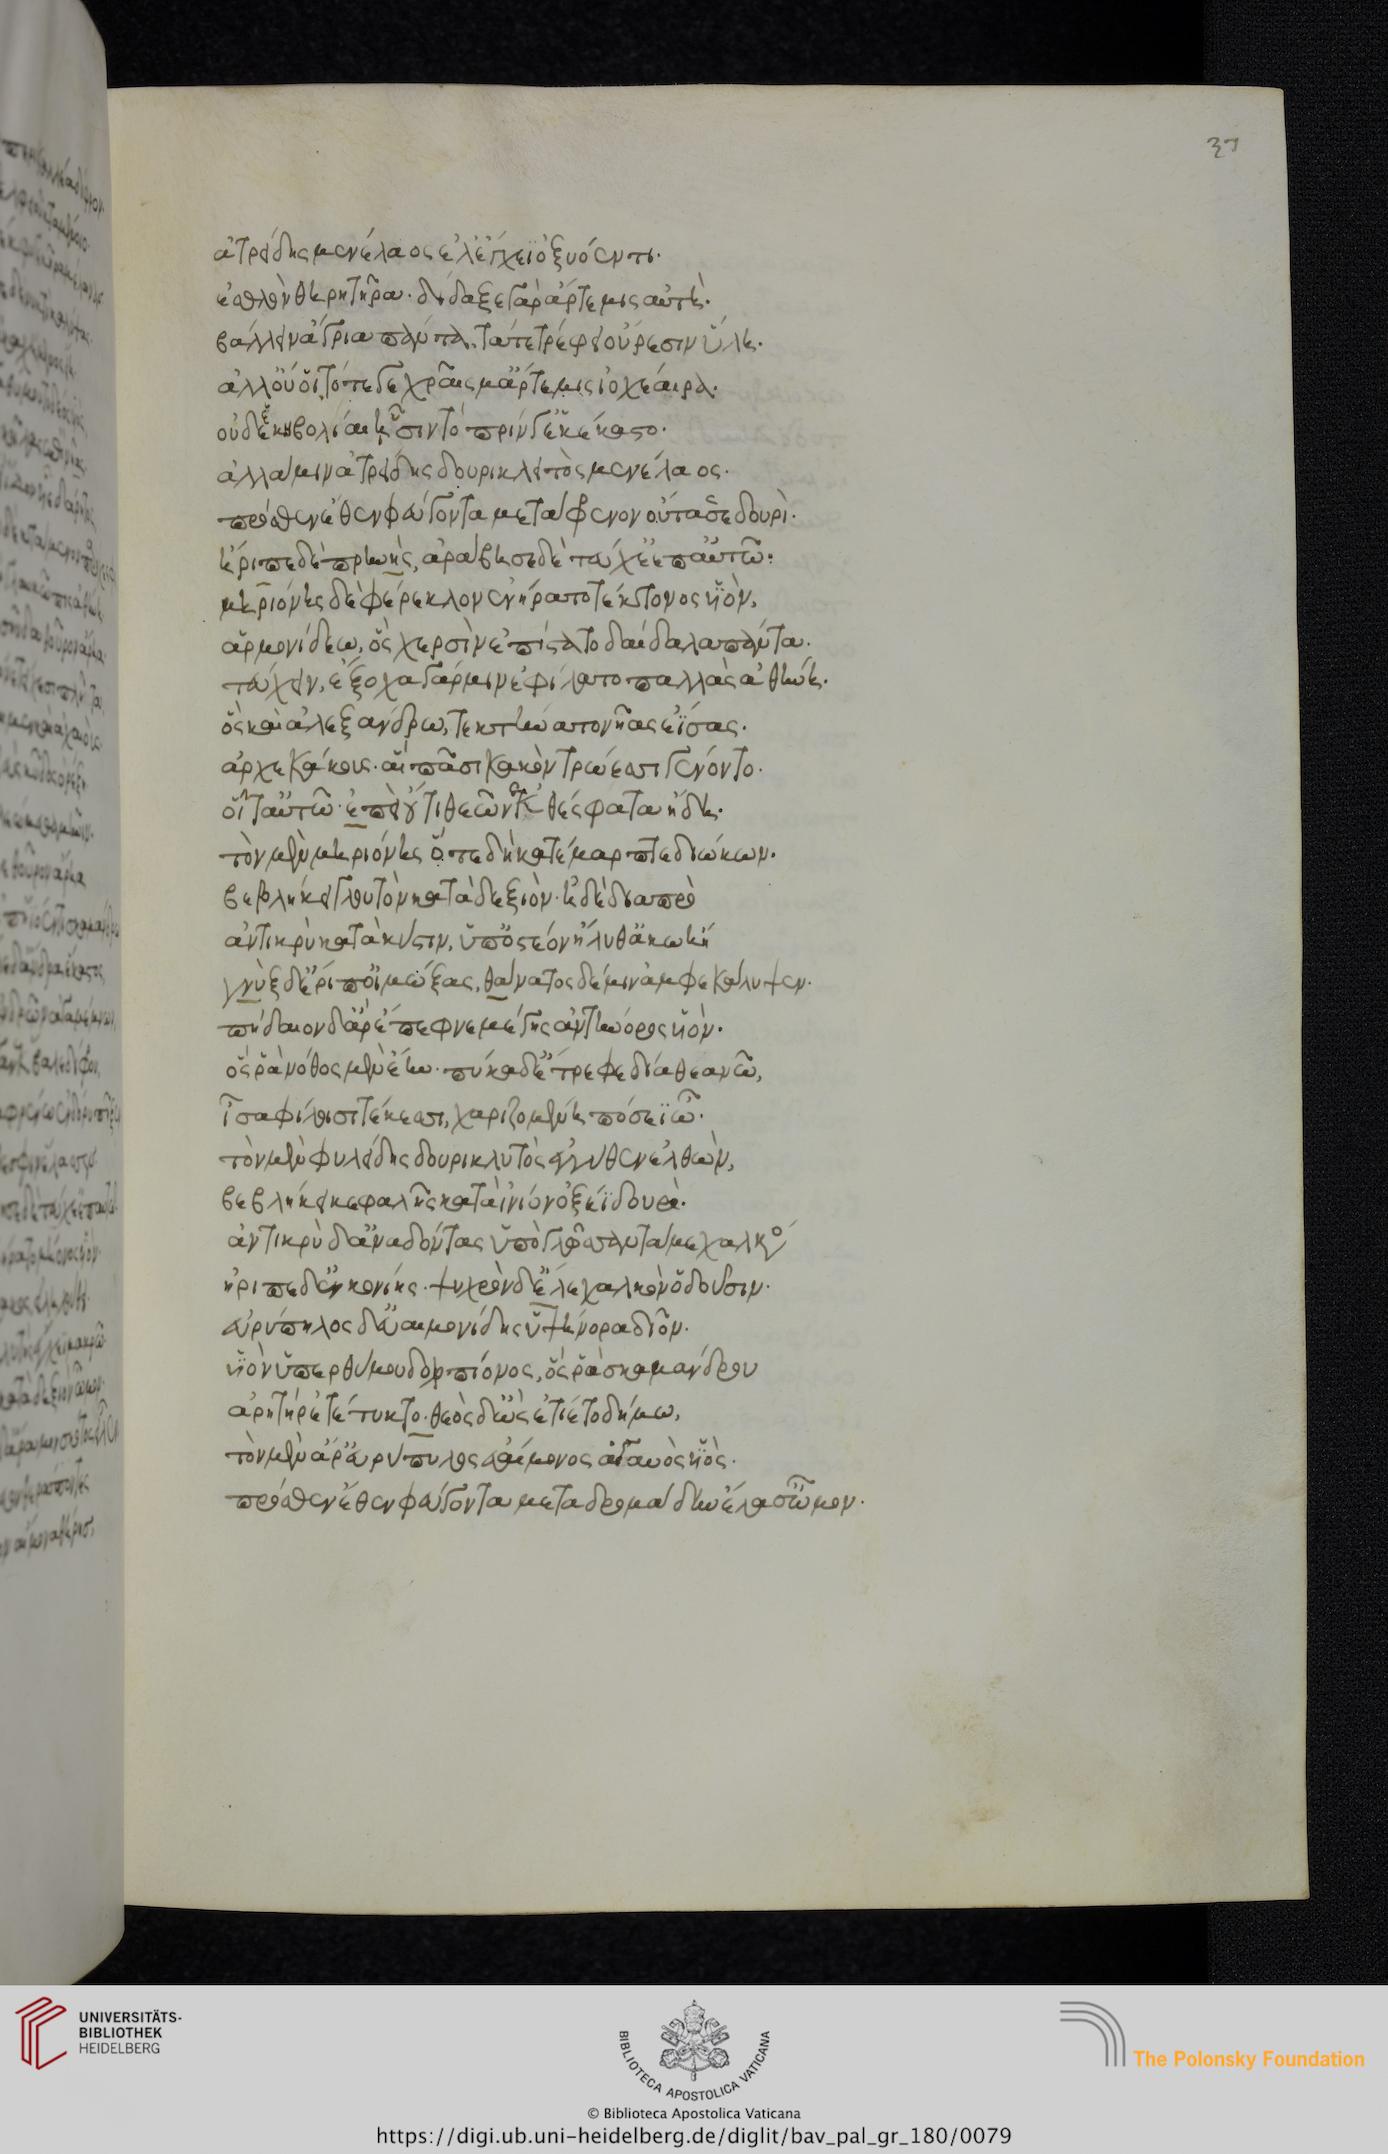 37
ἀτρείδης μενέλαος ἕλ' ἔγχεϊ ὀξυόεντι·
ἐσθλὸν θηρητῆρα· δίδαξε γὰρ ἄρτεμις αὐτὴ·
βάλλειν ἄγρια πάντα, τάτε τρέφει οὔρεσιν ὕλη·
ἀλλ' οὔ οἵ τότε γε χραῖσμ' ἄρτεμις ἰοχέαιρα·
οὐδ' ἑκηβολίαι ᾗσιν τὸ πρίν γ' ἐκέκαστο·
ἀλλά μιν ἀτρείδης δουρικλειτὸς μενέλαος·
πρόσθεν ἕθεν φεύγοντα μετάφρενον οὔτασε δουρὶ·
ἤριπε δὲ πρηνὴς, ἀράβησε δὲ τεύχε' ἐπ' αὐτῶ·
μηριόνης δὲ φέρεκλον ἐνήρατο τέκτονος υἱὸν,
ἁρμονίδεω, ὃς χερσὶν ἐπίστατο δαίδαλα πάντα·
τεύχειν, ἔξοχα γάρ μιν ἐφίλατο παλλὰς ἀθήνη·
ὃς καὶ ἀλεξάνδρω, τεκτήνατο νῆας ἐΐσας·
ἀρχεκάκους· αἳ πᾶσι κακὸν τρώεσσι γένοντο·
οἷ τ' αὐτῶ· ἐπεὶ οὔτι θεῶν ἐκ θέσφατα ἤδη·
τὸν μὲν μηριόνης ὅτε δὴ κατέμαρπτε διώκων·
βεβλήκει γλουτὸν κατὰ δεξιὸν· ἡ δὲ διαπρὸ
ἀντικρὺ κατὰ κύστιν, ὑπ' ὀστέον ἤλυθ' ἀκωκή
γνὺξ δ' ἔριπ' οἰμώξας, θάνατος δέ μιν ἀμφεκάλυψεν·
πήδαιον δ' ἄρ' ἔπεφνε μέγης ἀντήνορος υἱὸν·
ὅς ῥα νόθος μὲν ἔην· πύκα δ' ἔτρεφε δῖα θεανῶ,
ἶσα φίλοισι τέκεσσι, χαριζομένη πόσεϊ ᾧ·
τὸν μὲν φυλείδης δουρικλυτὸς ἐγγύθεν ἐλθὼν,
βεβλήκει κεφαλῆς κατὰ ἰνίον ὀξέϊ δουρὶ·
ἀντικρὺ δ' ἀν' ὀδόντας ὑπὸ γλῶσσαν τάμε χαλκός
ἤριπε δ' ἐν κονίης· ψυχρὸν δ' ἕλε χαλκὸν ὀδοῦσιν·
εὐρύπυλος δ' εὐαιμονίδης ὑψήνορα δῖον·
υἱὸν ὑπερθύμου δολοπίονος, ὅς ῥα σκαμάνδρου
ἀρητὴρ ἐτέτυκτο· θεὸς δ' ὣς ἐτίετο δήμω,
τὸν μὲν ἄρ' εὐρύπυλος εὐαίμονος ἀγλαὸς υἱὸς·
πρόσθεν ἕθεν φεύγοντα μεταδρομάδην ἔλασ' ὦμον·
UNIVERSITÄTS-
BIBLIOTHEK
HEIDELBERG
BIBLIOTECA APOSTOLICA VATICANA
The Polonsky Foundation
© Biblioteca Apostolica Vaticana
https://digi.ub.uni-heidelberg.de/diglit/bav_pal_gr_180/0079